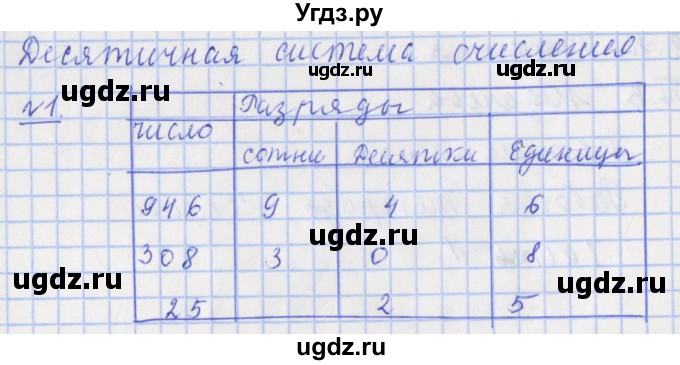 Угдз.ру
Десятичная система счисления
ugdz.ru ugdz.ru ugdz.ru
№1.
число Разряды
сотни Десятки Единицы
ugdz.ru ugdz.ru
946 9 4 6
ugdz.ru
308 3 0 8
ugdz.ru ugdz.ru
25 2 5
ugdz.ru ugdz.ru